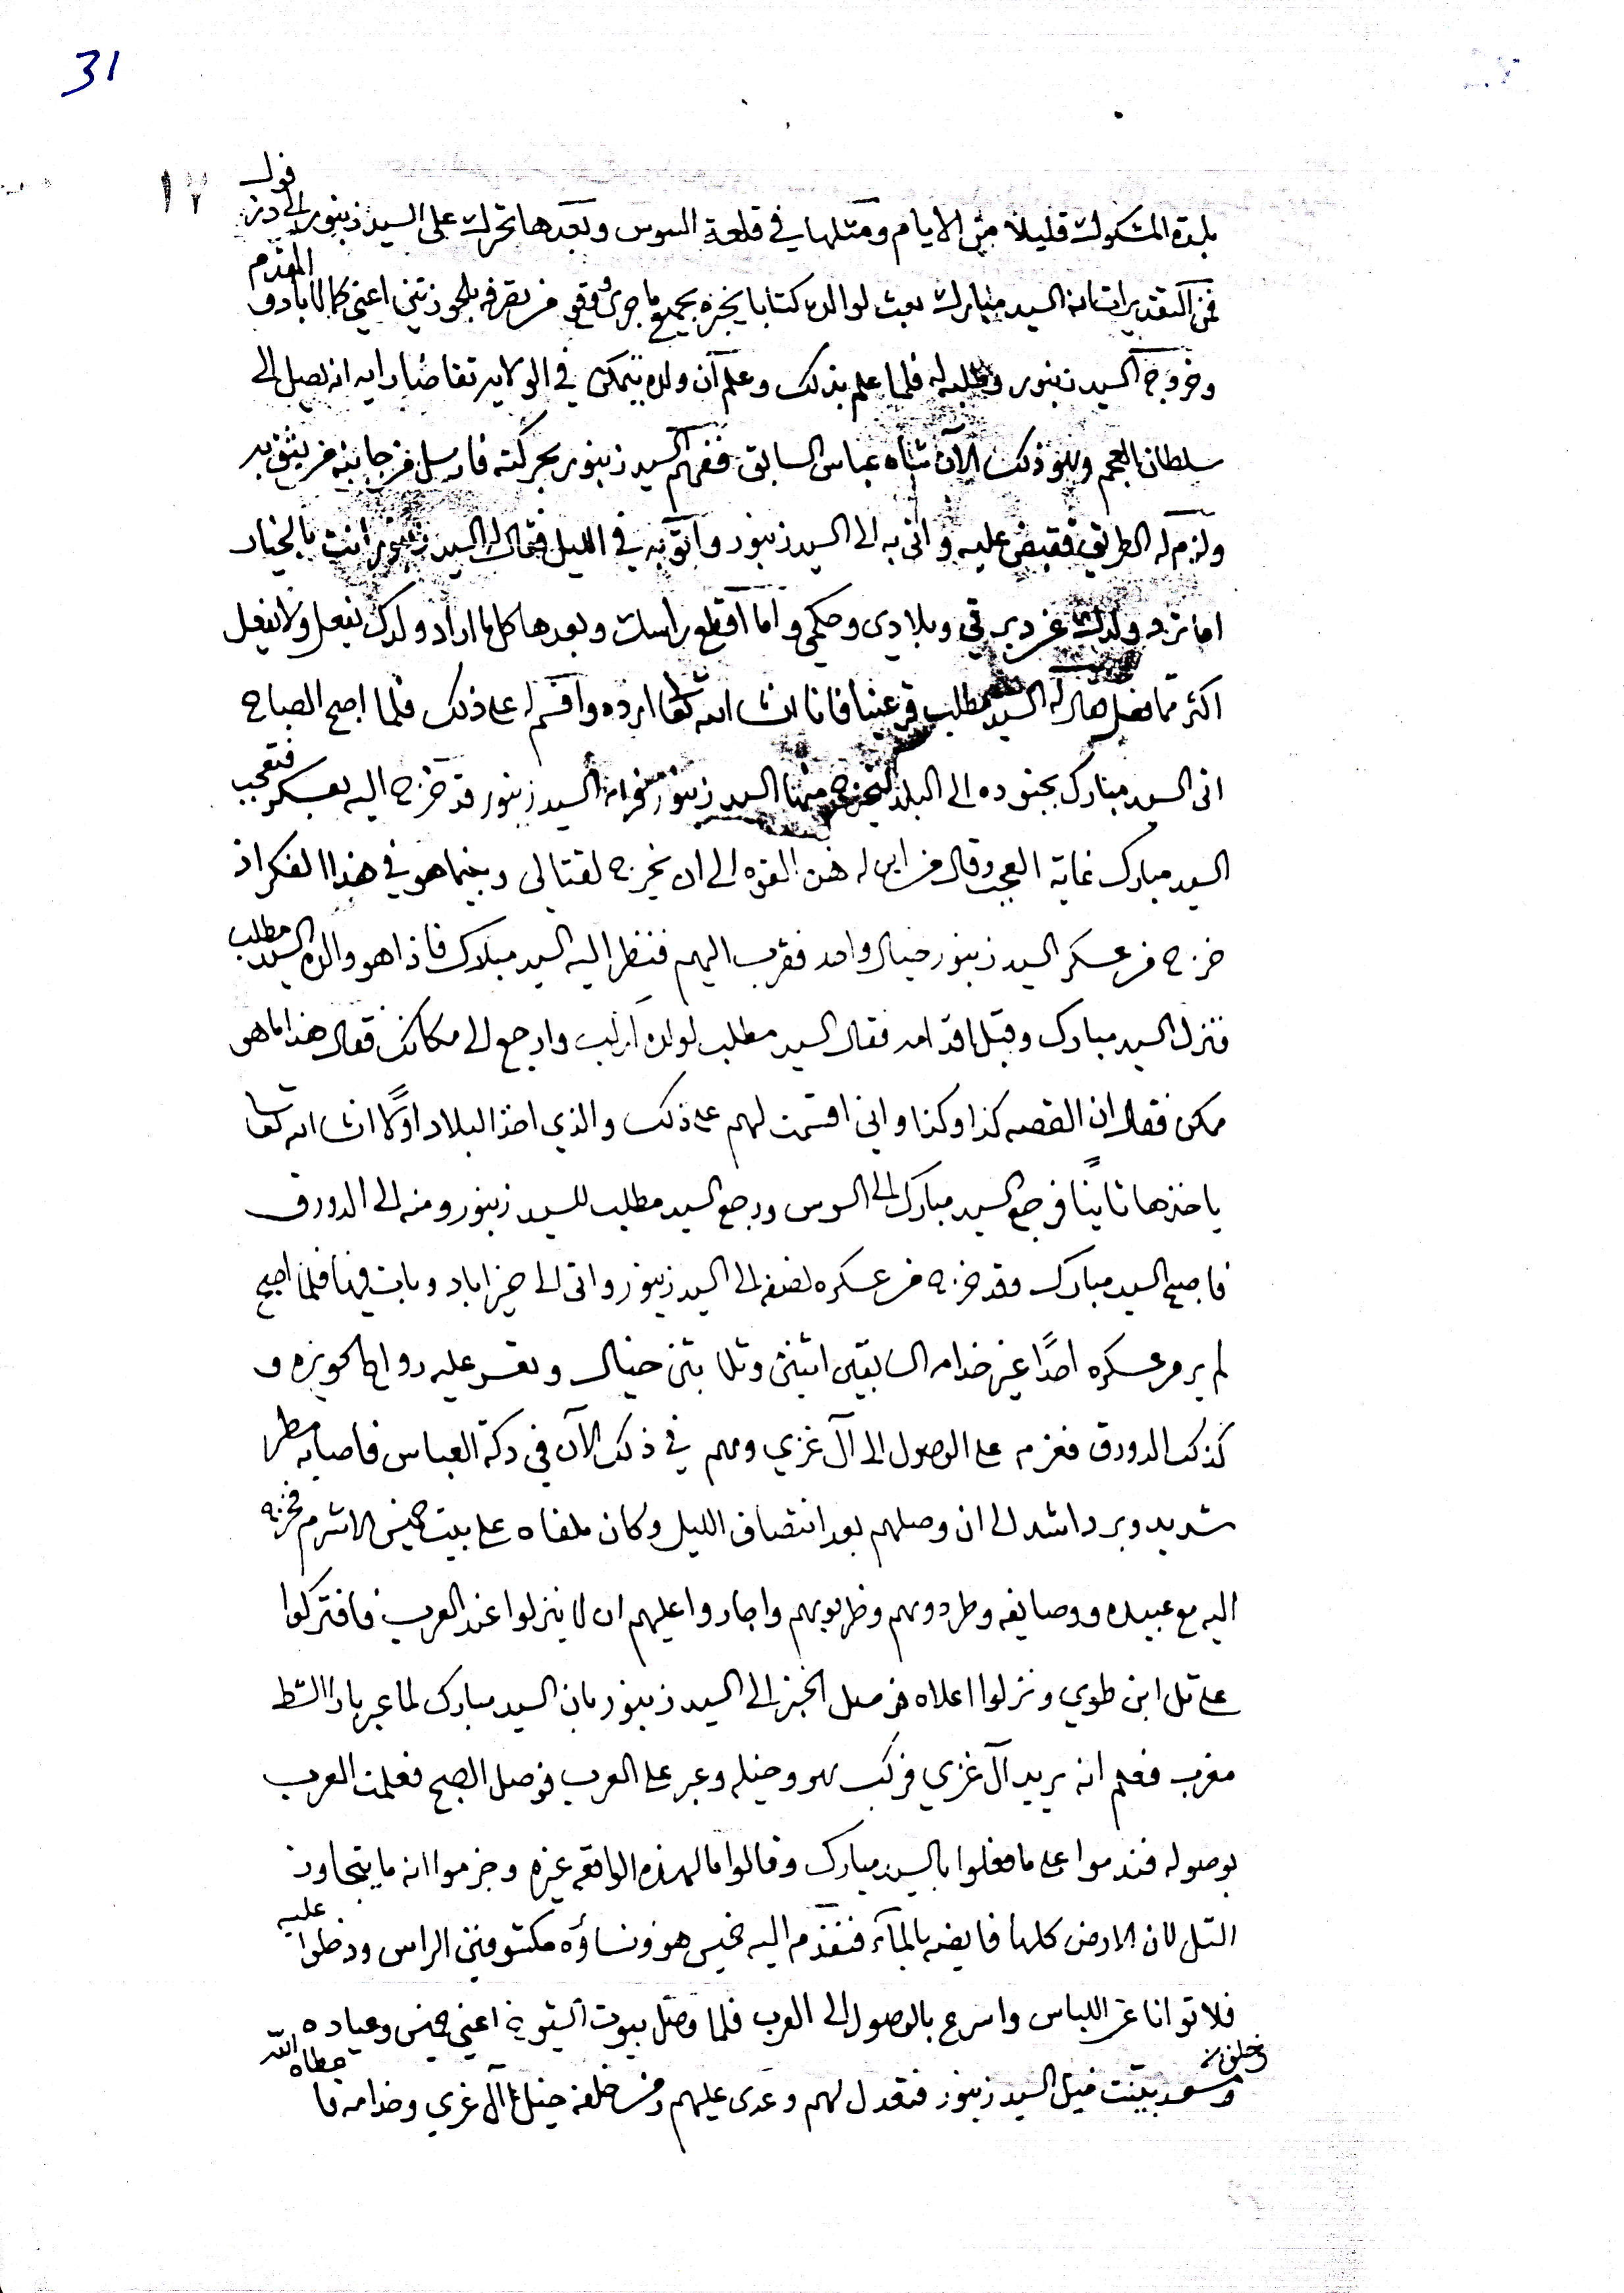 31
١٧
بلدة المشكوك قليلا من الايام ومثلها في قلعة السوس وبعدها تحرك على السيد زنبور الى دز فول
فمن التقدير ان السيد مبارك بعث لوالده كتابا يخبره بجميع ما جرى ووقع من تصرفه اعني كمالاباد و المقدم
وخروج السيد زنبور له فلما علم بذلك وعلم ان ولده يتمكن في الولايه تقاضا رايه انه يصل الى
سلطان العجم وهو ذلك الآن شاه عباس السابق ففهم السيد زنبور بحركته فارسل من جانبه من يثق به
ولزم له الطريق فقبض عليه واتى به الى السيد زنبور واتو به في الليل فقال له السيد زنبور انت بالخيار
اما ترد ولدك عن وبلادي وحكمي واما اقطع راسك وبعدها كل ما اراد ولدك يفعل ولا يفعل
اكثر مما فعل فقال له السيد مطلب قر عينا فانا انشا الله تعا ارده واقسم له على ذلك فلما اصبح الصباح
اتى السيد مبارك بجنوده الى البلد ليخرج منها السيد زنبور السيد زنبور قد خرج اليه بعسكر فتعجب
السيد مبارك غاية العجب وقال من اين له هذه القوه الى ان يخرج لقتالى وبينما هو في هذا الفكر اذ
خرج من عسكر السيد زنبور خيال واحد فقرب اليهم فنظر اليه السيد مبارك فاذا هو والده السيد مطلب
فنزل السيد مبارك وقبل اقدامه فقال السيد مطلب لولده اركب وارجع الى مكانك فقال هذا ما هو
ممكن فقال ان القصه كذا وكذا واني اقسمت لهم على ذلك والذي اخذ البلاد اولًا انشا الله تعا
ياخذها ثانيًا فرجع السيد مبارك الى السوس ورجع السيد مطلب للسيد زنبور ومنه الى الدورق
فاصبح السيد مبارك وقد خرج من عسكره نصفه الى السيد زنبور واتى الى خيراباد وبات فيها فلما اصبح
لم ير من عسكره احدًا غير خدامه السابقين اثنين وثلاثين خيال وتعسر عليه رواح الحويزه و
كذلك الدورق فعزم على الوصول الى آل غزي وهم في ذلك الآن في دكة العباس فاصابه مطر
شديد وبرد اشد الى ان وصلهم بعد انتصاف الليل وكان ملفاه على بيت خميس الاشرم فخرج
اليه مع عبيده ووصايفه وطردوهم وضربوهم واجاروا عليهم ان لا ينزلوا عند العرب فافتركوا
على تل ابن طوي ونزلوا اعلاه فوصل الخبر الى السيد زنبور بان السيد مبارك لما عبر الشط
مغرب فعلم انه يريد آل غزي فركب هو وخيله وعبر على العرب فوصل الصبح فعلمت العرب
بوصوله فندموا على ما فعلوا بالسيد مبارك وقالوا ما لهذه الواقعه غيره وجزموا انه ما يتجاوز
التل لان الارض كلها فايضه بالمآء فتقدم اليه خميس هو ونساؤه مكشوفين الراس ودخلوا عليه
فلا توانا عن اللباس واسرع بالوصول الى العرب فلما وصل بيوت الشيوخ اعني خميس وعياده
وسعد بينت خيل السيد زنبور فتقدل لهم وعدى عليهم ومن خلفه خيل آل غزي وخدامه فا عطاه الله